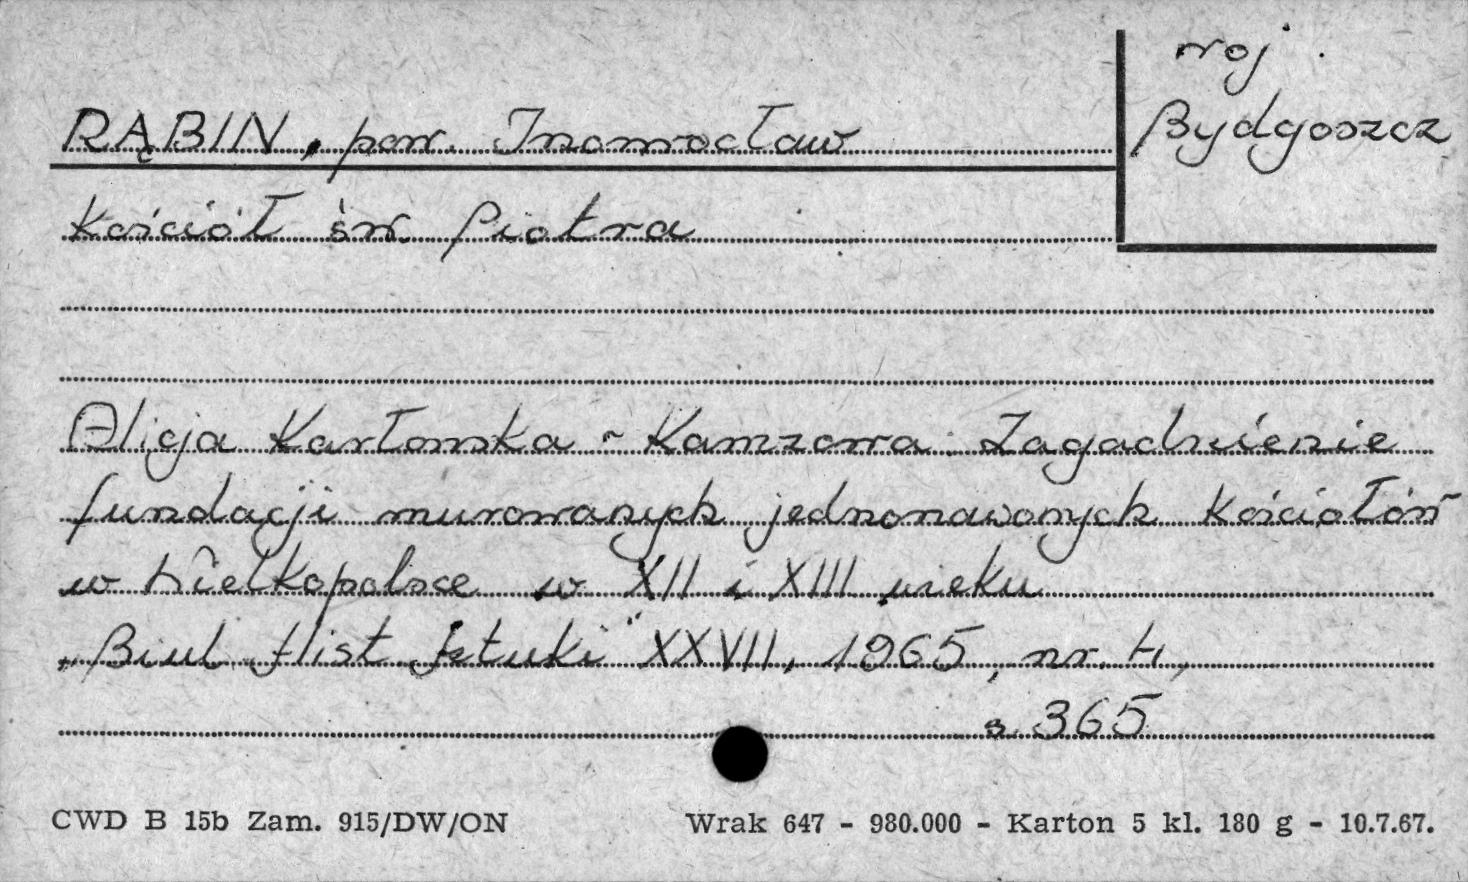 woj.
Bydgoszcz
RĄBIN, pow. Inowrocław
Kościół św. Piotra
Alicja Karłowska - Kamzowa: Zagadnienie
fundacji murowanych jednonawowych kościołów
w Wielkopolsce w XII i XIII wieku
"Biul. Hist. Sztuki" XXVII, 1965, nr. 4,
s. 365
CWD B 15b Zam. 915/DW/ON
Wrak 647 - 980.000 - Karton 5 kl. 180 g - 10.7.67.